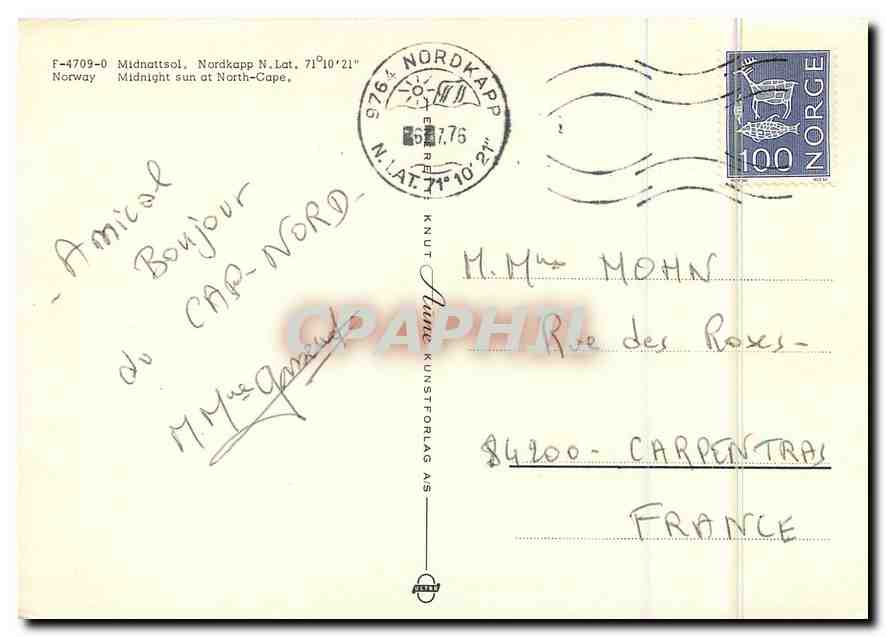 F-4709-0 Midnattsol, Nordkapp N.Lat. 71°10'21"
Norway Midnight sun at North-Cape.
9764 NORDKAPP
26.7.76
N.LAT. 71° 10' 21"
NORGE
100
- Amical
Bonjour
du CAP-NORD-
M. Mme
ENERET KNUT Aune KUNSTFORLAG A/S
ULTRA
CPAPHIL
M. Mme MOHN
Rue des Roses-
84200- CARPENTRAS
FRANCE